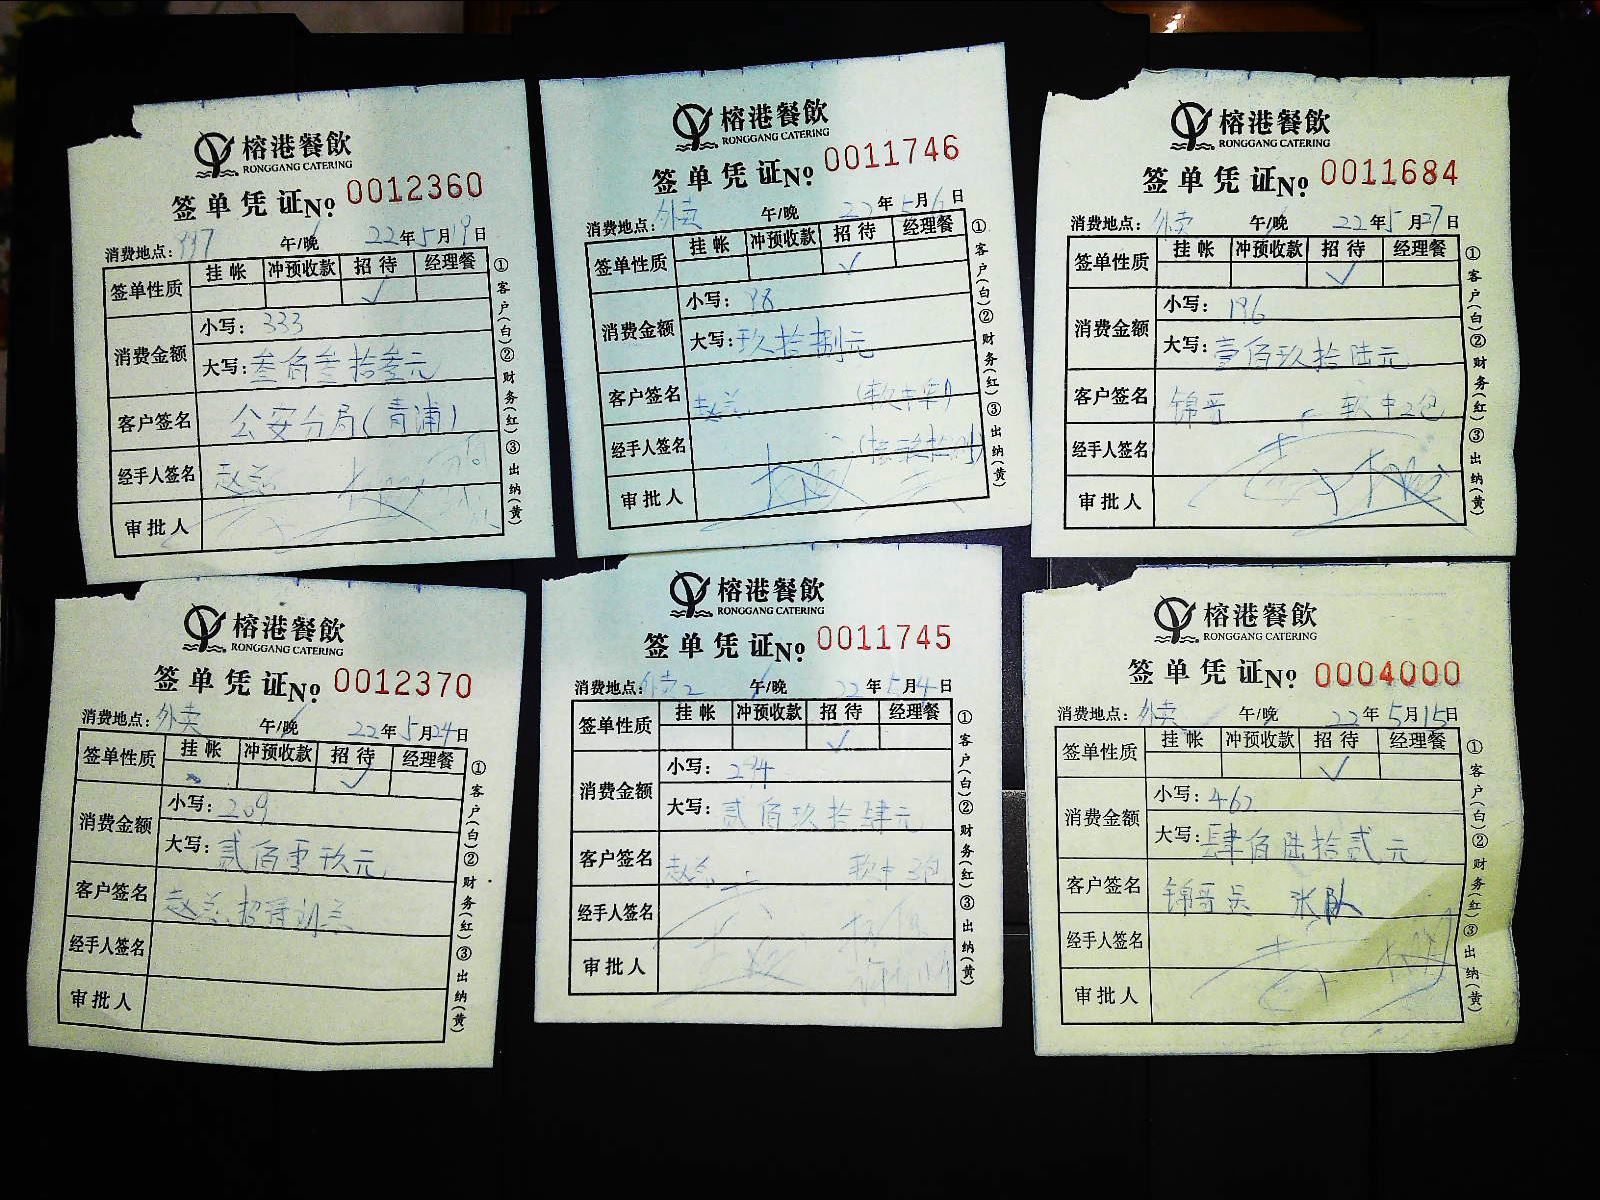 榕港餐飲
RONGGANG CATERING
签单凭证 No. 0012360
消费地点: 997 午/晚 22年5月19日
签单性质 挂帐 冲预收款 招待 经理餐
✓
消费金额 小写: 333
大写: 叁佰叁拾叁元
客户签名 公安分局(青浦)
经手人签名 赵总
审批人
①客户(白)②财务(红)③出纳(黄)
榕港餐飲
RONGGANG CATERING
签单凭证 No. 0011746
消费地点: 外卖 午/晚 22年5月6日
签单性质 挂帐 冲预收款 招待 经理餐
✓
消费金额 小写: 98
大写: 玖拾捌元
客户签名 赵总
经手人签名
审批人
①客户(白)②财务(红)③出纳(黄)
榕港餐飲
RONGGANG CATERING
签单凭证 No. 0011684
消费地点: 外卖 午/晚 22年5月27日
签单性质 挂帐 冲预收款 招待 经理餐
✓
消费金额 小写: 196
大写: 壹佰玖拾陆元
客户签名 软中2包
经手人签名
审批人
①客户(白)②财务(红)③出纳(黄)
榕港餐飲
RONGGANG CATERING
签单凭证 No. 0012370
消费地点: 外卖 午/晚 22年5月24日
签单性质 挂帐 冲预收款 招待 经理餐
✓
消费金额 小写: 209
大写: 贰佰零玖元
客户签名 赵总
经手人签名
审批人
①客户(白)②财务(红)③出纳(黄)
榕港餐飲
RONGGANG CATERING
签单凭证 No. 0011745
消费地点: 外卖2 午/晚 22年5月4日
签单性质 挂帐 冲预收款 招待 经理餐
✓
消费金额 小写: 294
大写: 贰佰玖拾肆元
客户签名 赵总 软中3包
经手人签名
审批人
①客户(白)②财务(红)③出纳(黄)
榕港餐飲
RONGGANG CATERING
签单凭证 No. 0004000
消费地点: 外卖 午/晚 22年5月15日
签单性质 挂帐 冲预收款 招待 经理餐
✓
消费金额 小写: 462
大写: 肆佰陆拾贰元
客户签名 张队
经手人签名
审批人
①客户(白)②财务(红)③出纳(黄)